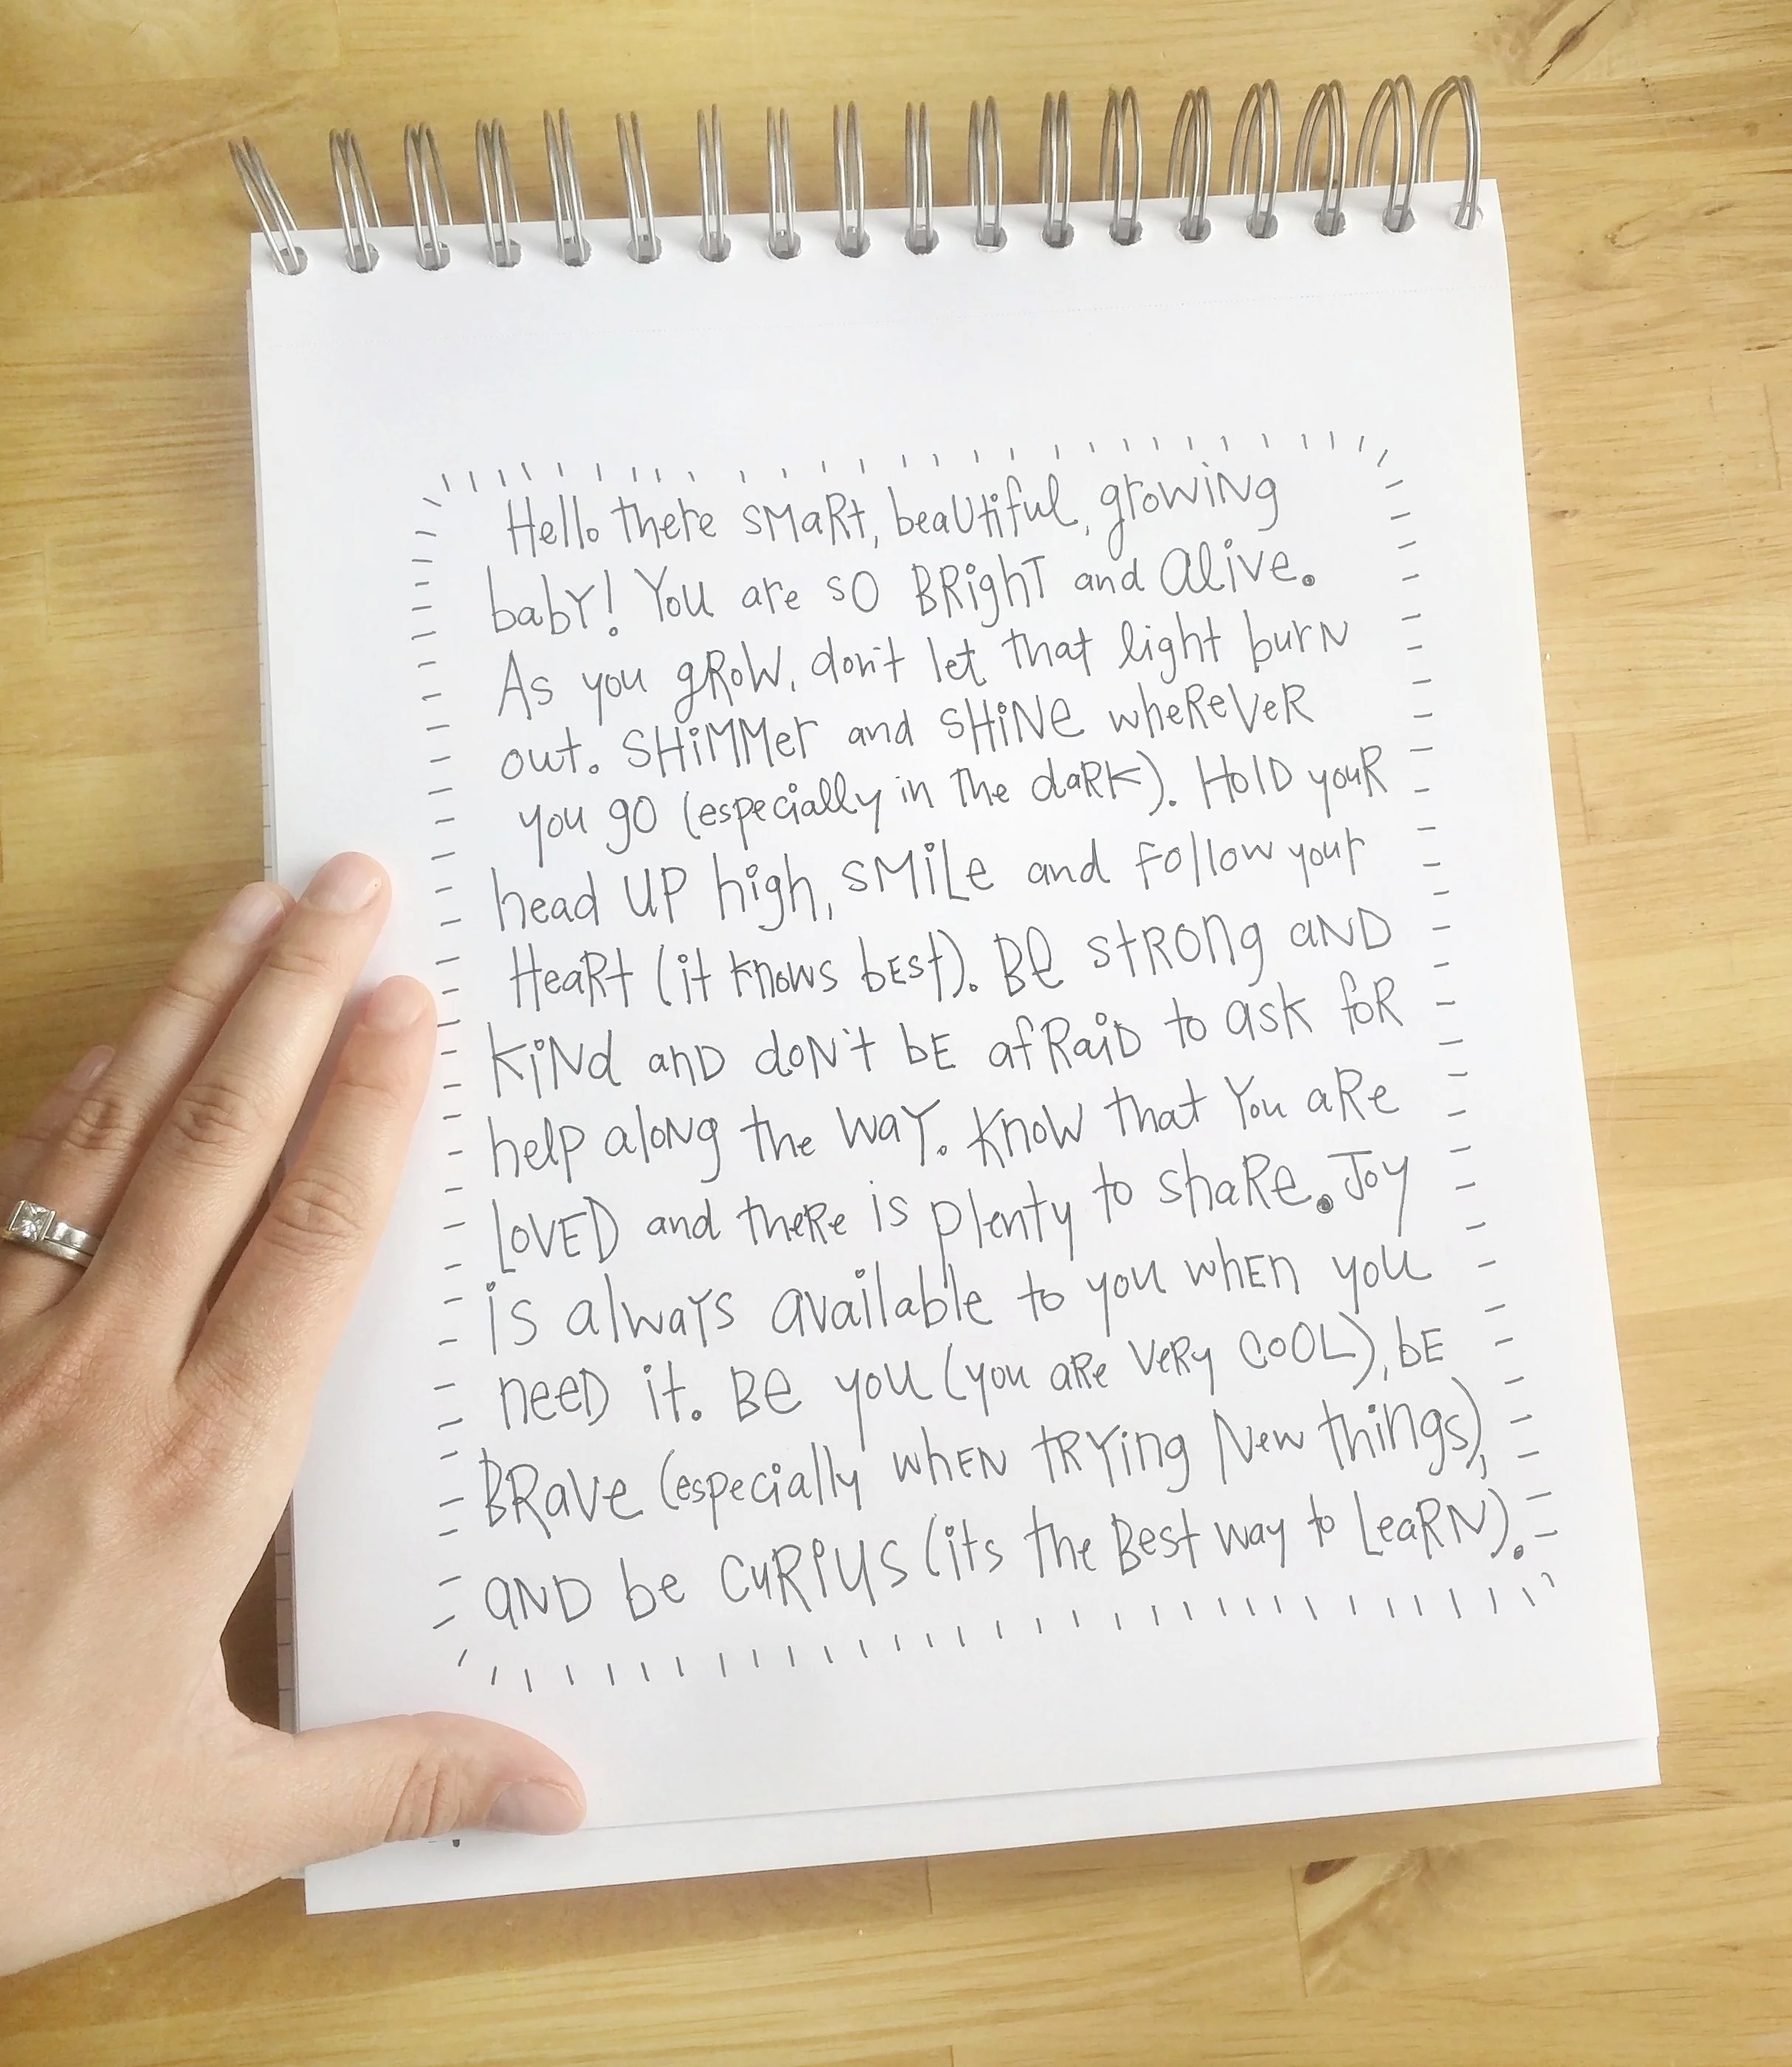 Hello there SMaRt, beaUtiful, growiNg
babY! You are sO BRighT and alive.
As you gRoW, don't let that light burN
out. SHiMMer and SHiNe wheReVeR
you gO (especially in the daRK). HolD youR
head UP high, SMiLe and follow your
HeaRt (it knows bEst). Be stRONg aND
KiNd anD doN't bE afRaiD to ask foR
help aloNg the WaY. KnoW that You aRe
LOVED and theRe is plenty to shaRe. Joy
is alwaYs available to you whEn you
neeD it. Be you (you aRe VeRy COOL), bE
BRaVe (especially whEN tRYing New things),
aND be CuRiUS (its the Best way to LeaRN).